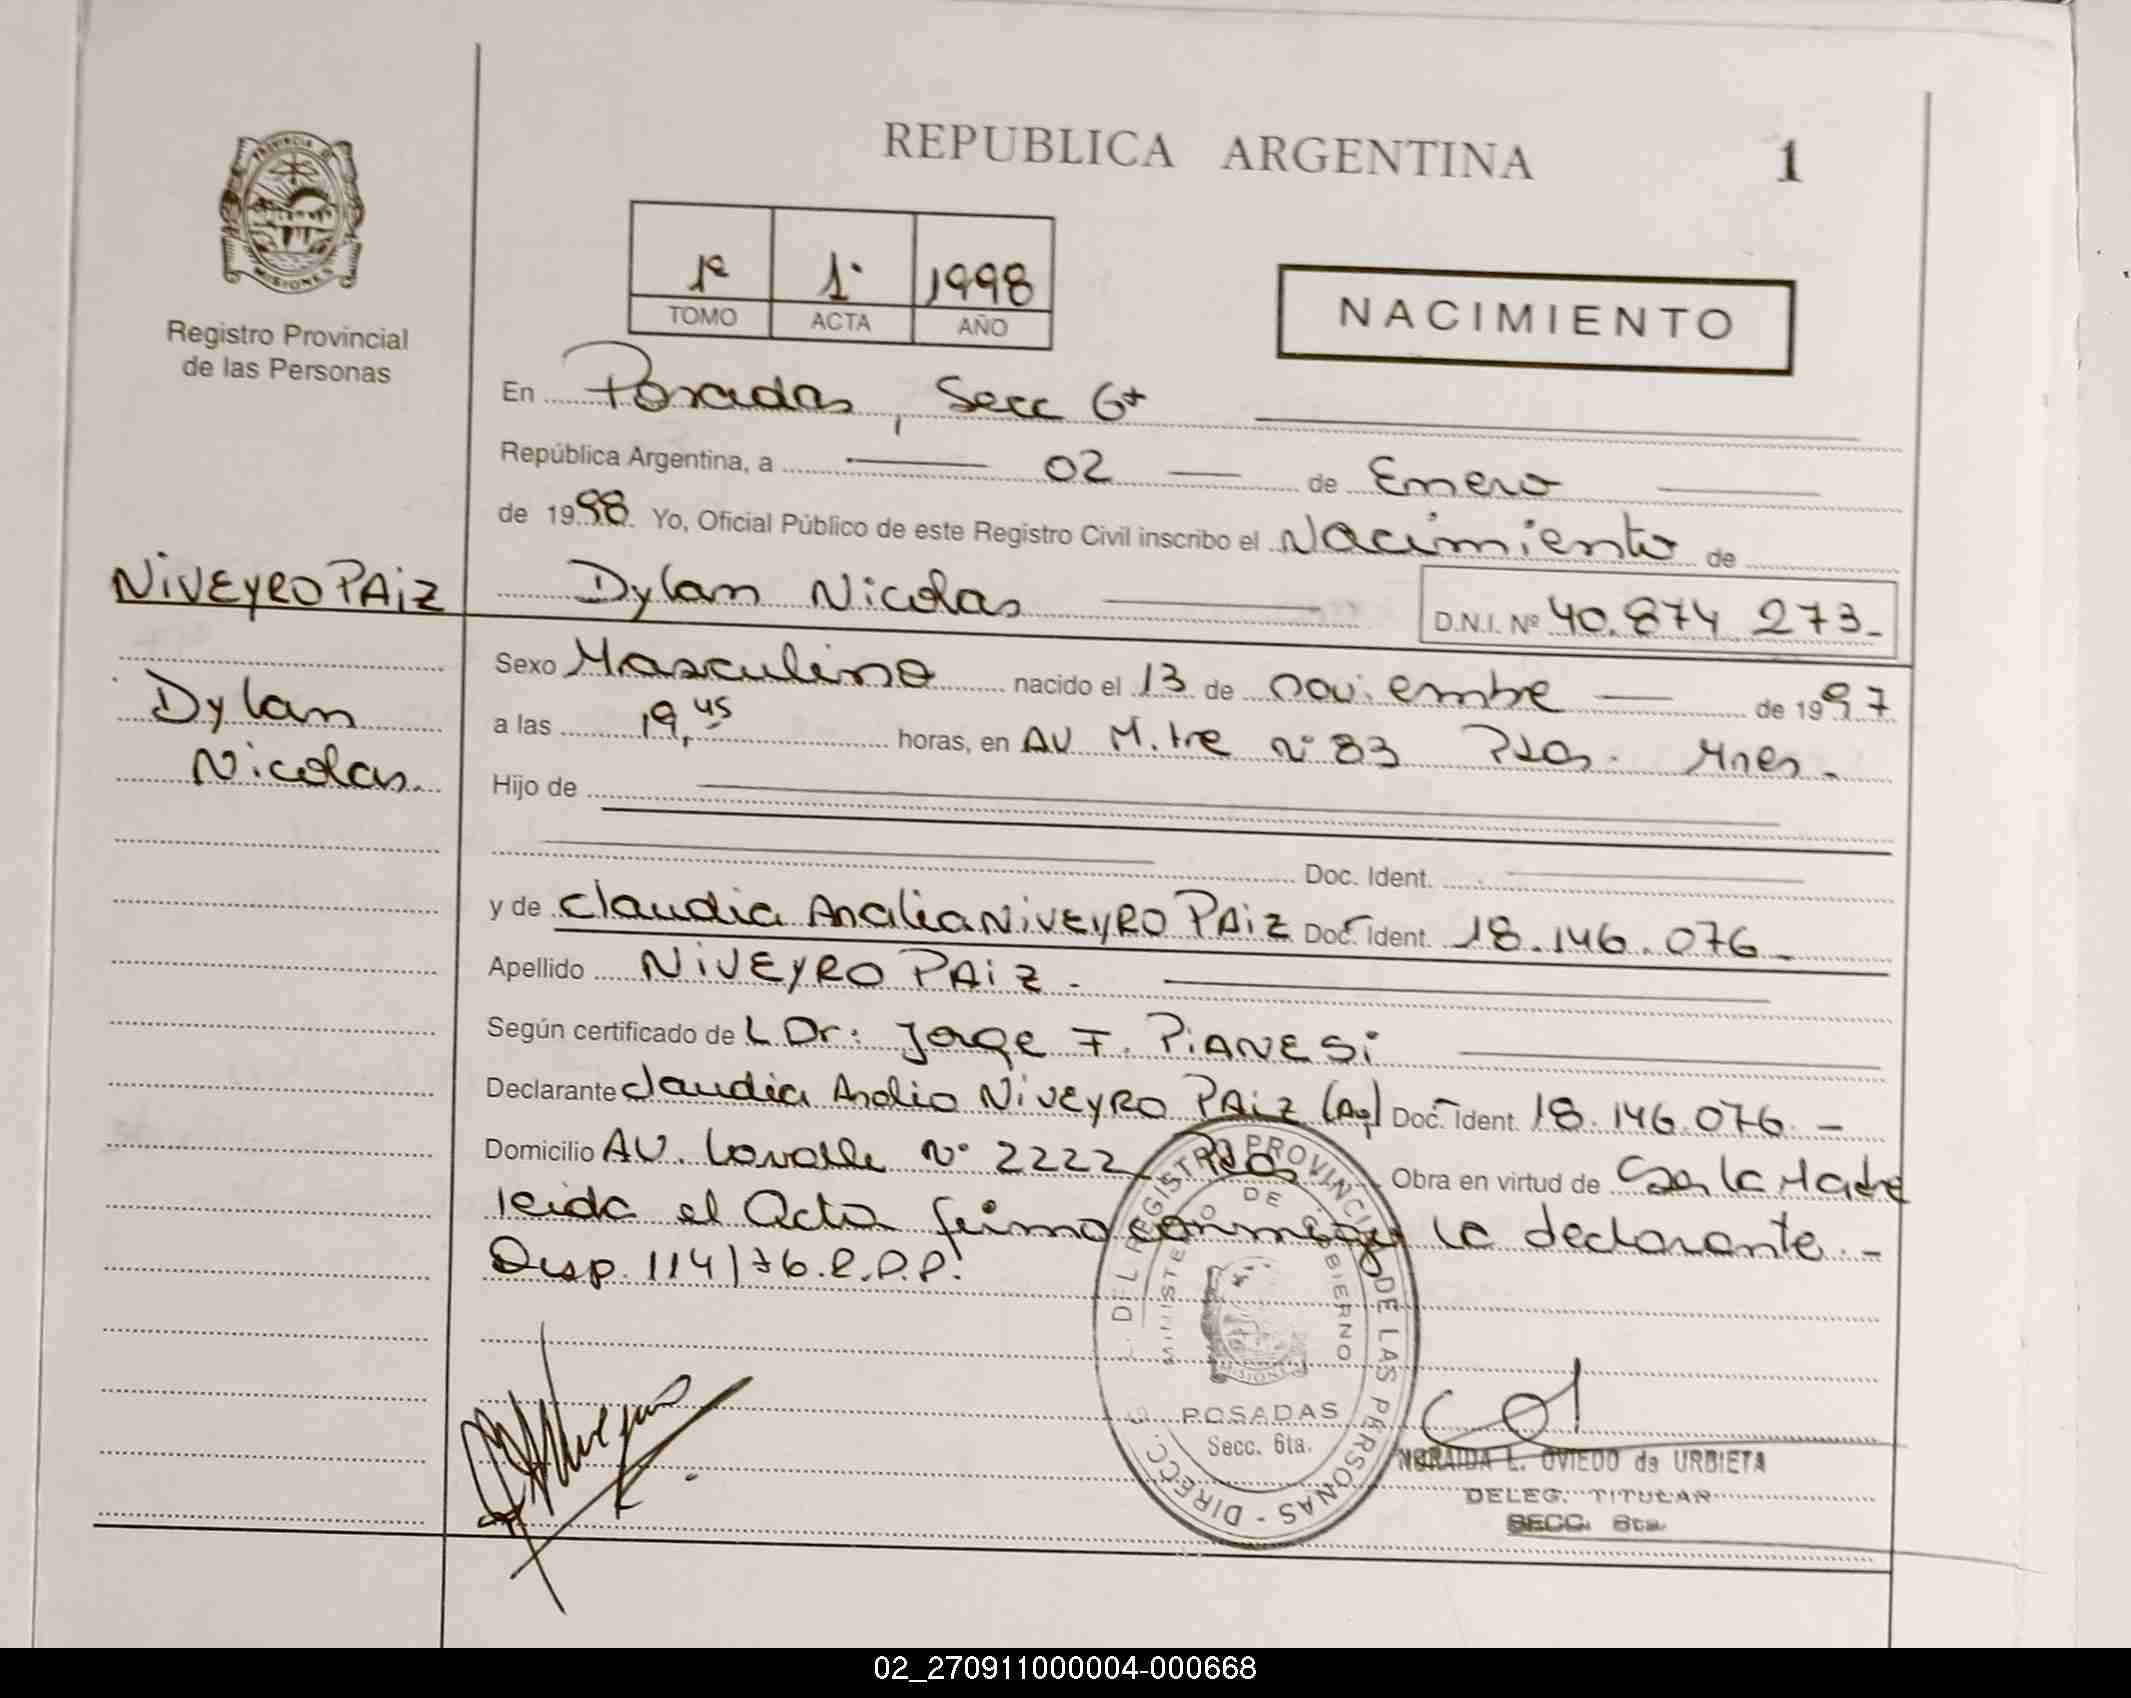 REPUBLICA ARGENTINA
1
PROVINCIA DE
MISIONES
Registro Provincial
de las Personas
1º 1º 1998
TOMO ACTA AÑO
NACIMIENTO
En Posadas, Secc 6ta
República Argentina, a 02 de Enero
de 1998. Yo, Oficial Público de este Registro Civil inscribo el Nacimiento de
NIVEYRO PAIZ
Dylan Nicolas D.N.I. Nº 40.874 273-
Dylan
Nicolas.
Sexo Masculino nacido el 13 de noviembre de 1997
a las 19,45 horas, en AV Mitre Nº 83 Pdas. Mnes.-
Hijo de
Doc. Ident.
y de Claudia Analia NIVEYRO PAIZ Doc. Ident. 18.146.076-
Apellido NIVEYRO PAIZ.-
Según certificado de L Dr: Jorge F. PIANESI
Declarante Claudia Analia NIVEYRO PAIZ Doc. Ident. 18.146.076.-
Domicilio AV. Lavalle Nº 2222 Pdas Obra en virtud de Ser la Madre
leida el Acta firma conmigo la declarante.-
Disp. 114/76.R.P.P.
DIRECC. DEL REGISTRO PROVINCIAL DE LAS PERSONAS -
MINISTERIO DE GOBIERNO
MISIONES
POSADAS
Secc. 6ta.
NORAIDA L. OVIEDO de URBIETA
DELEG. TITULAR
SECC. 6ta.
02_270911000004-000668